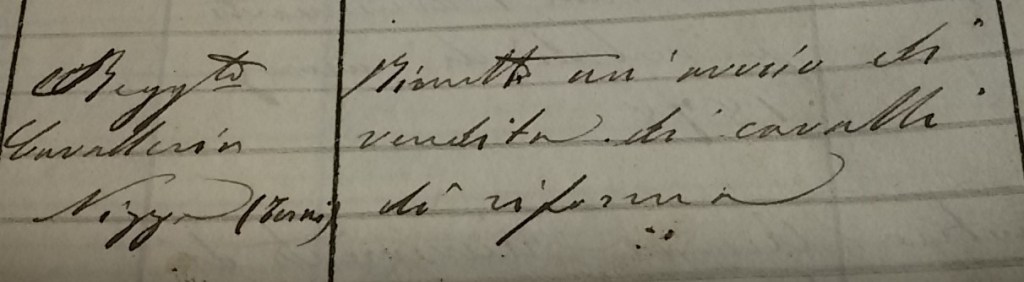 Reggto
Cavalleria
Nizza (Terni)
Rimette un'avviso di
vendita di cavalli
di riforma